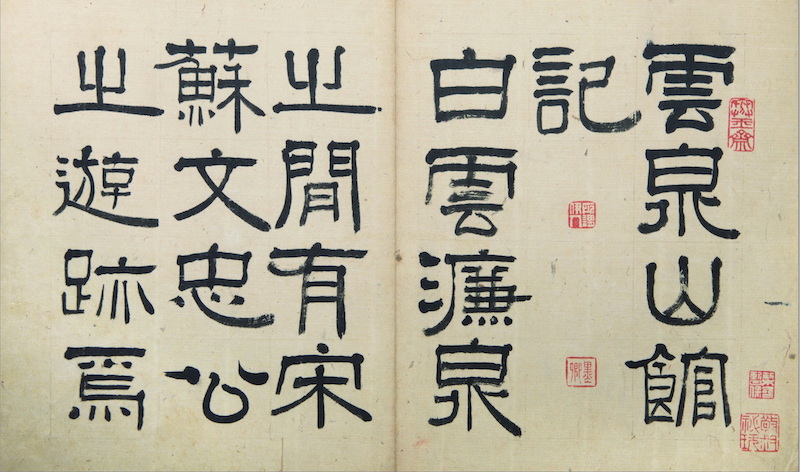 雲泉山館
記
白雲濂泉
之間有宋
蘇文忠公
之遊跡焉